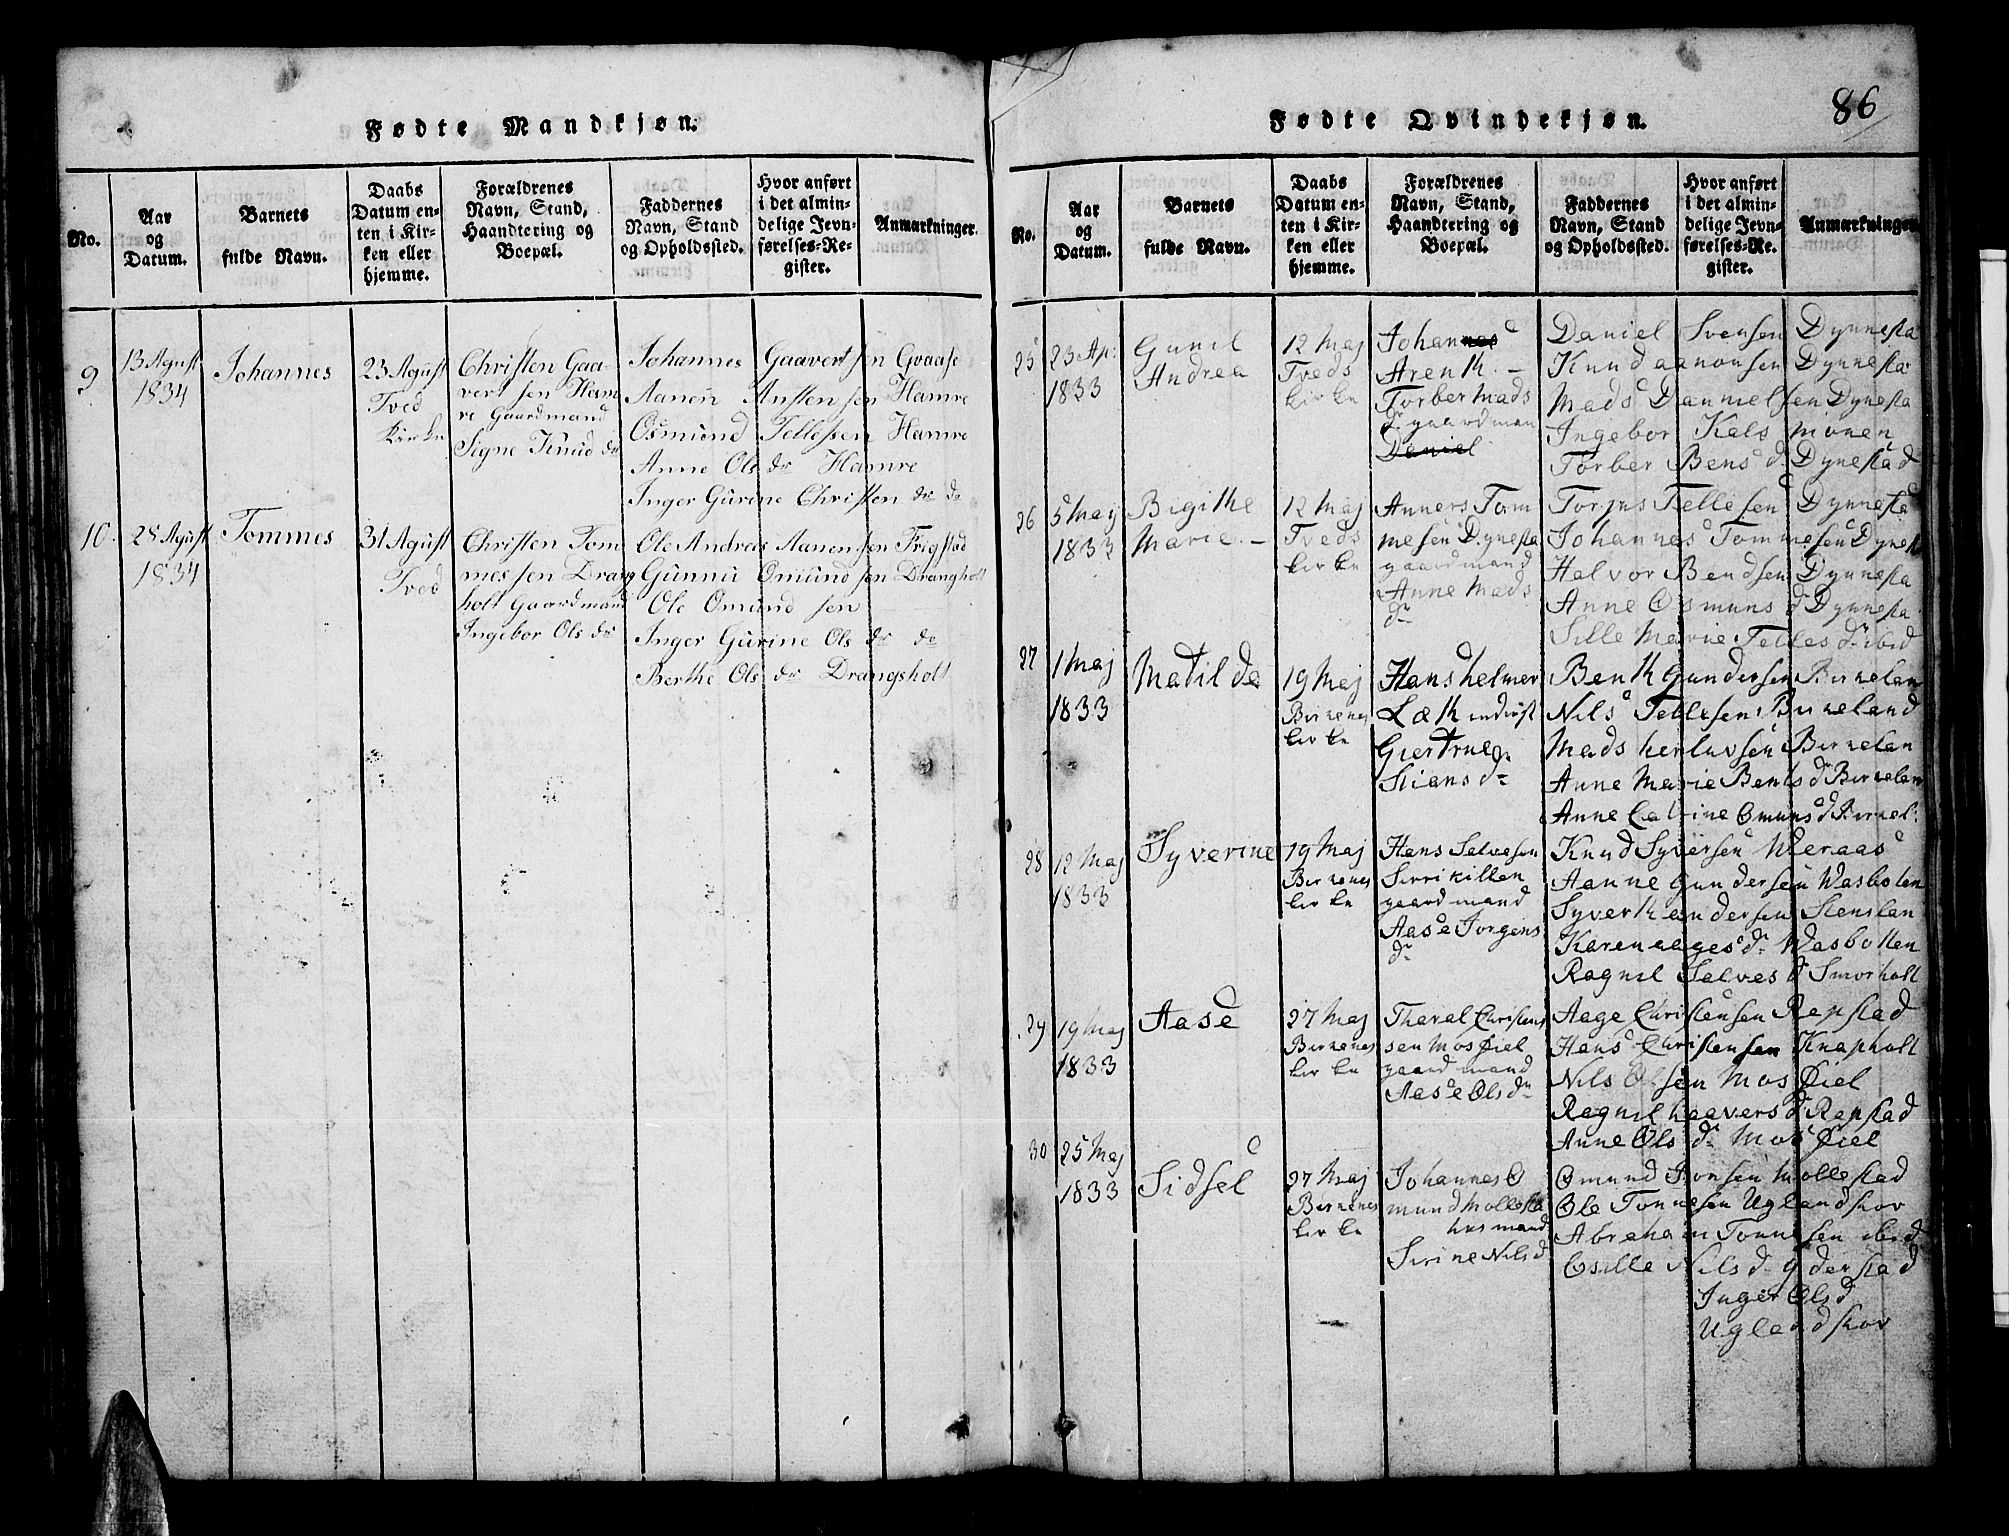 86
Fødte Mandkjøn.
No.
Aar
og
Datum.
Barnets
fulde Navn.
Daabs
Datum en-
ten i Kir-
ken eller
hjemme.
Forældrenes
Navn, Stand,
Haandtering og
Boepæl.
Faddernes
Navn, Stand
og Opholdssted.
Hvor anført
i det almin-
delige Jevn-
førelses-Re-
gister.
Anmærkninger.
9
13 Agust
1834
Johannes
23 Agust
Tved
Kirke
Christen Gaa-
vert sen Ham
re Gaardmand
Signe Knud dr
Johannes Gaavert sen Gvaase
Aanen Austen sen Hamre
Osmund Tellessen Hamre
Anne Ols dr Hamre
Inger Gurine Christen dr do
10.
28 Agust
1834
Tommes
31 Agust
Tved
Christen Tom
mes sen Drang
holt Gaardmand
Ingebor Ols dr
Ole Andreas Aanen sen Frigstad
Gunnu Omund sen Drangholt
Ole Omund sen
Inger Gurine Ols dr do
Berthe Ols dr Drangsholt
Fødte Qvindekjøn.
No.
Aar
og
Datum.
Barnets
fulde Navn.
Daabs
Datum en-
ten i Kir-
ken eller
hjemme.
Forældrenes
Navn, Stand,
Haandtering og
Boepæl.
Faddernes
Navn, Stand
og Opholdssted.
Hvor anført
i det almin-
delige Jevn-
førelses-Re-
gister.
Anmærkninger
25
23 Ap:
1833
Gunil
Andrea
12 Maj
Tveds
kirke
Johannes
Arenth. -
Torber Mads
dr gaardman
Daniel
Daniel Svensen Dynnesta
Knud aanonsen Dynnesta
Mads Dannielsen Dynesta
Ingebor Kels monen
Torber Bens d. Dynestad
26
5 Maij
1833
Bigithe
Marie. -
12 Maj
Tveds
kirke
Anners Tom
mesen Dynesta
gaardmand
Anne Mads
dr
Torjus Tellesen Dynnesta
Johannes Tommesen Dynest
Halvor Bendsen Dynnesta
Anne Osmuns d Dynnesta
Sille Marie Telles dr ibid
27
1 Maj
1833
Matilde
19 Maj
Birkenes
kirke
Hans helmer
Læth inderst
Giertrue
Stians dr
Benth Gundersen Birkelan
Nils Tellesen Birkeland
Mads herlufsen Birkelan
Anne Marie Bents dr Birkelan
Anne Catrine Omuns d Birkel:
28
12 Maj
1833
Syverine
19 Maj
Birkenes
kirke
Hans Salvesen
Serrikillen
gaardmand
Aase Jorgens
dr
Knud Syversen Weraas
Aanne Gundersen Wasboten
Syverth andersen Stenslan
Karen aages dr Wasbotten
Ragnil Salves d Smorholt
29
19 Maj
1833
Aase
27 Maj
Birkenes
kirke
Tharal Christens
sen Mosfiel
gaardmand
Aase Ols dr
Aage Christensen Repstad
Hans Christensen Knapholt
Nils Olsen Mosfiel
Ragnil haavers d Repstad
Anne Ols dr Mosfiel
30
25 Maj
1833
Sidsel
27 Maj
Birkenes
kirke
Johannes O
mund Mollesta
husmand
Sirine Nils d
Omund Jonsen Mollestad
Ole Tonnesen Uglandskov
Abraham Tonnesen ibid
Osille Nils d. yderstad
Inger Ols d
Uglandskov